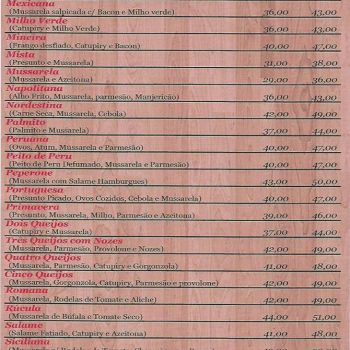 Mexicana
(Mussarela salpicada c/ Bacon e Milho verde) 36,00 43,00
Milho Verde
(Catupiry e Milho Verde) 36,00 43,00
Mineira
(Frango desfiado, Catupiry e Bacon) 40,00 47,00
Mista
(Presunto e Mussarela) 31,00 38,00
Mussarela
(Mussarela e Azeitona) 29,00 36,00
Napolitana
(Alho Frito, Mussarela, parmesão, Manjericão) 36,00 43,00
Nordestina
(Carne Seca, Mussarela, Cebola) 42,00 49,00
Palmito
(Palmito e Mussarela) 37,00 44,00
Peruana
(Ovos, Atum, Mussarela e Parmesão) 40,00 47,00
Peito de Peru
(Peito de Peru Defumado, Mussarela e Parmesão) 40,00 47,00
Peperone
(Mussarela com Salame Hamburgues) 43,00 50,00
Portuguesa
(Presunto Picado, Ovos Cozidos, Cebola e Mussarela) 40,00 47,00
Primavera
(Presunto, Mussarela, Milho, Parmesão e Azeitona) 39,00 46,00
Dois Queijos
(Catupiry e Mussarela) 37,00 44,00
Três Queijos com Nozes
(Mussarela, Parmesão, Provolone e Nozes) 42,00 49,00
Quatro Queijos
(Mussarela, Parmesão, Catupiry e Gorgonzola) 41,00 48,00
Cinco Queijos
(Mussarela, Gorgonzola, Catupiry, Parmesão e provolone) 42,00 49,00
Romana
(Mussarela, Rodelas de Tomate e Aliche) 42,00 49,00
Rúcula
(Mussarela de Búfala e Tomate Seco) 44,00 51,00
Salame
(Salame Fatiado, Catupiry e Azeitona) 41,00 48,00
Siciliana